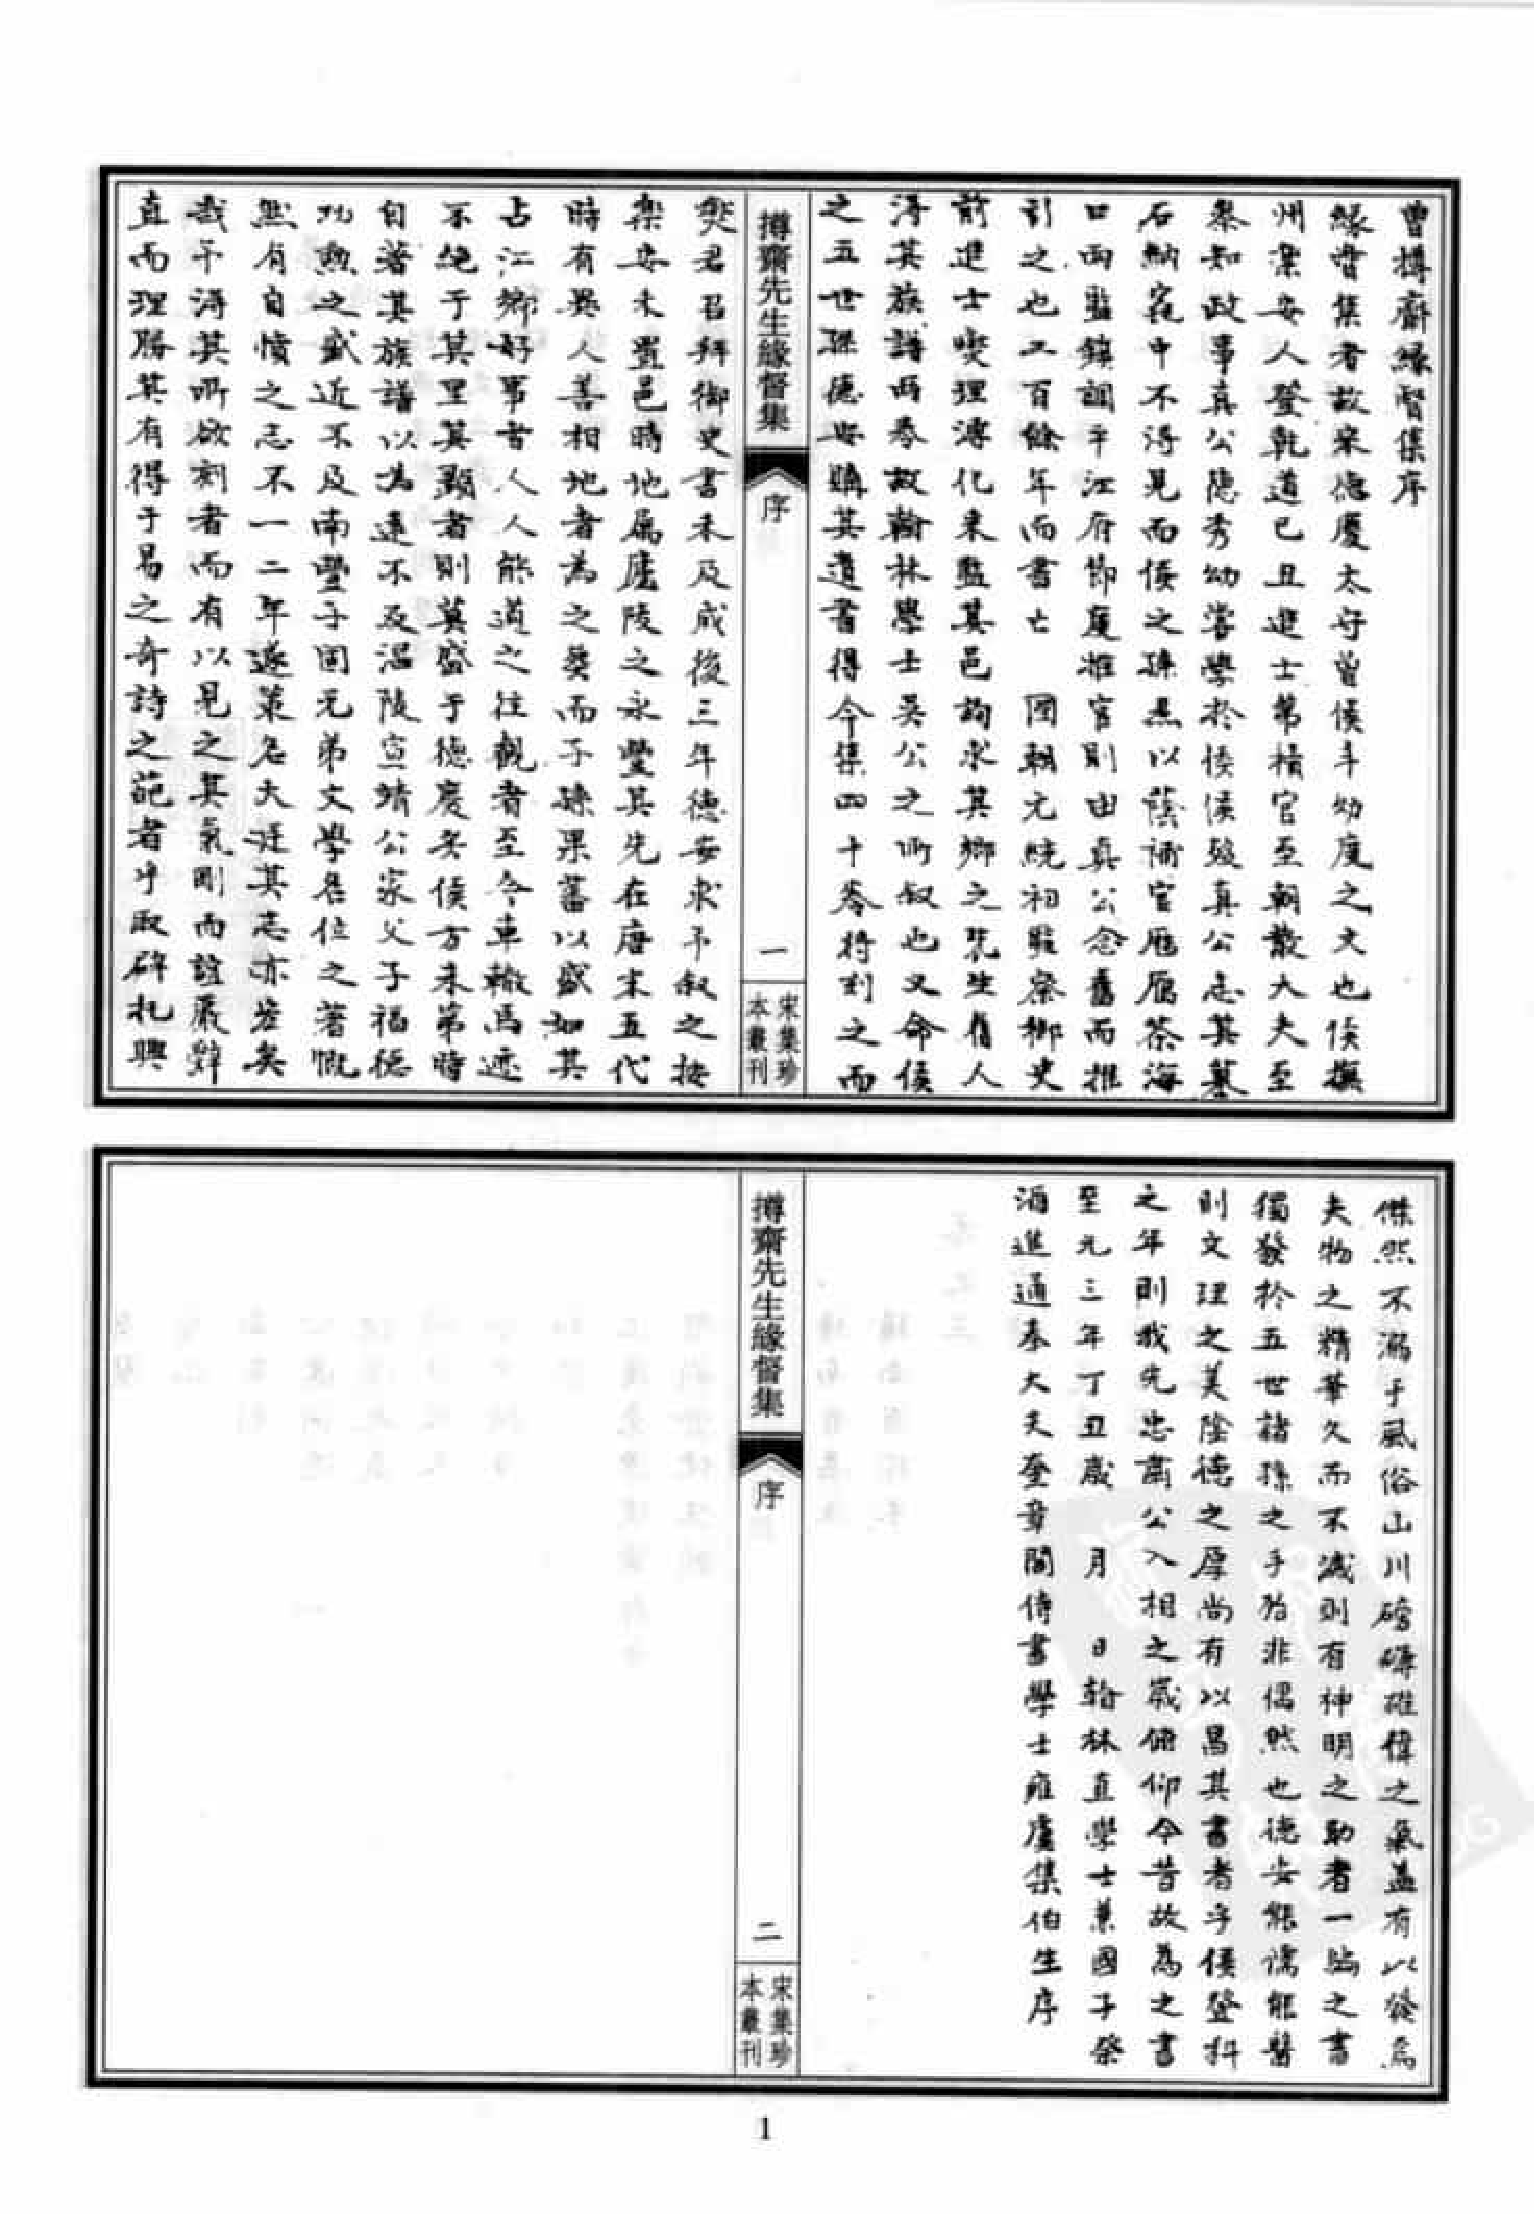 曾撙齋緣督集序
緣督集者故宋德慶太守曾侯丰幼度之文也侯撫
州樂安人登乾道己丑進士第積官至朝散大夫至
參知政事真公德秀幼嘗學於侯侯歿真公志其墓
石納窀中不得見而侯之孫黒以蔭補官歷雁茶海
口兩監鎮調平江府節度推官則由真公念舊而推
引之也又百餘年而書亡 國朝元統初監察御史
前進士燮理溥化來監其邑詢求其鄉之先生賢人
得其族譜兩卷故翰林學士吳公之所叙也又命侯
之五世孫德安購其遺書得今集四十卷將刻之而
撙齋先生緣督集
序
一
宋集珍
本叢刊
爕君召拜御史書未及成後三年德安求予叙之按
樂安未置邑時地屬廬陵之永豐其先在唐末五代
時有異人善相地者為之葬而子孫果蕃以盛如其
占江鄉好事者人人能道之往觀者至今車轍馬迹
不絕于其里其顯者則莫盛于德慶矣侯方未第時
自著其族譜以為遠不及溫陵宣靖公家父子福德
功勲之盛近不及南豐子固元弟文學名位之著慨
然有自憤之志不一二年遂策名大廷其志亦苦矣
哉予得其所欲刻者而有以見之其氣剛而誼嚴辭
直而理勝其有得于易之奇詩之葩者乎取碑札興
傑然不溺于風俗山川磅礴碓偉之氣盖有以發焉
夫物之精華久而不滅則有神明之助者一臨之書
獨發於五世諸孫之手殆非偶然也德安能儒能醫
則文理之美陰德之厚尚有以昌其書者乎侯登科
之年則我先忠肅公入相之歲俯仰今昔故為之書
至元三年丁丑歲 月 日翰林直學士兼國子祭
酒進通奉大夫奎章閣侍書學士雍虞集伯生序
撙齋先生緣督集
序
二
宋集珍
本叢刊
1